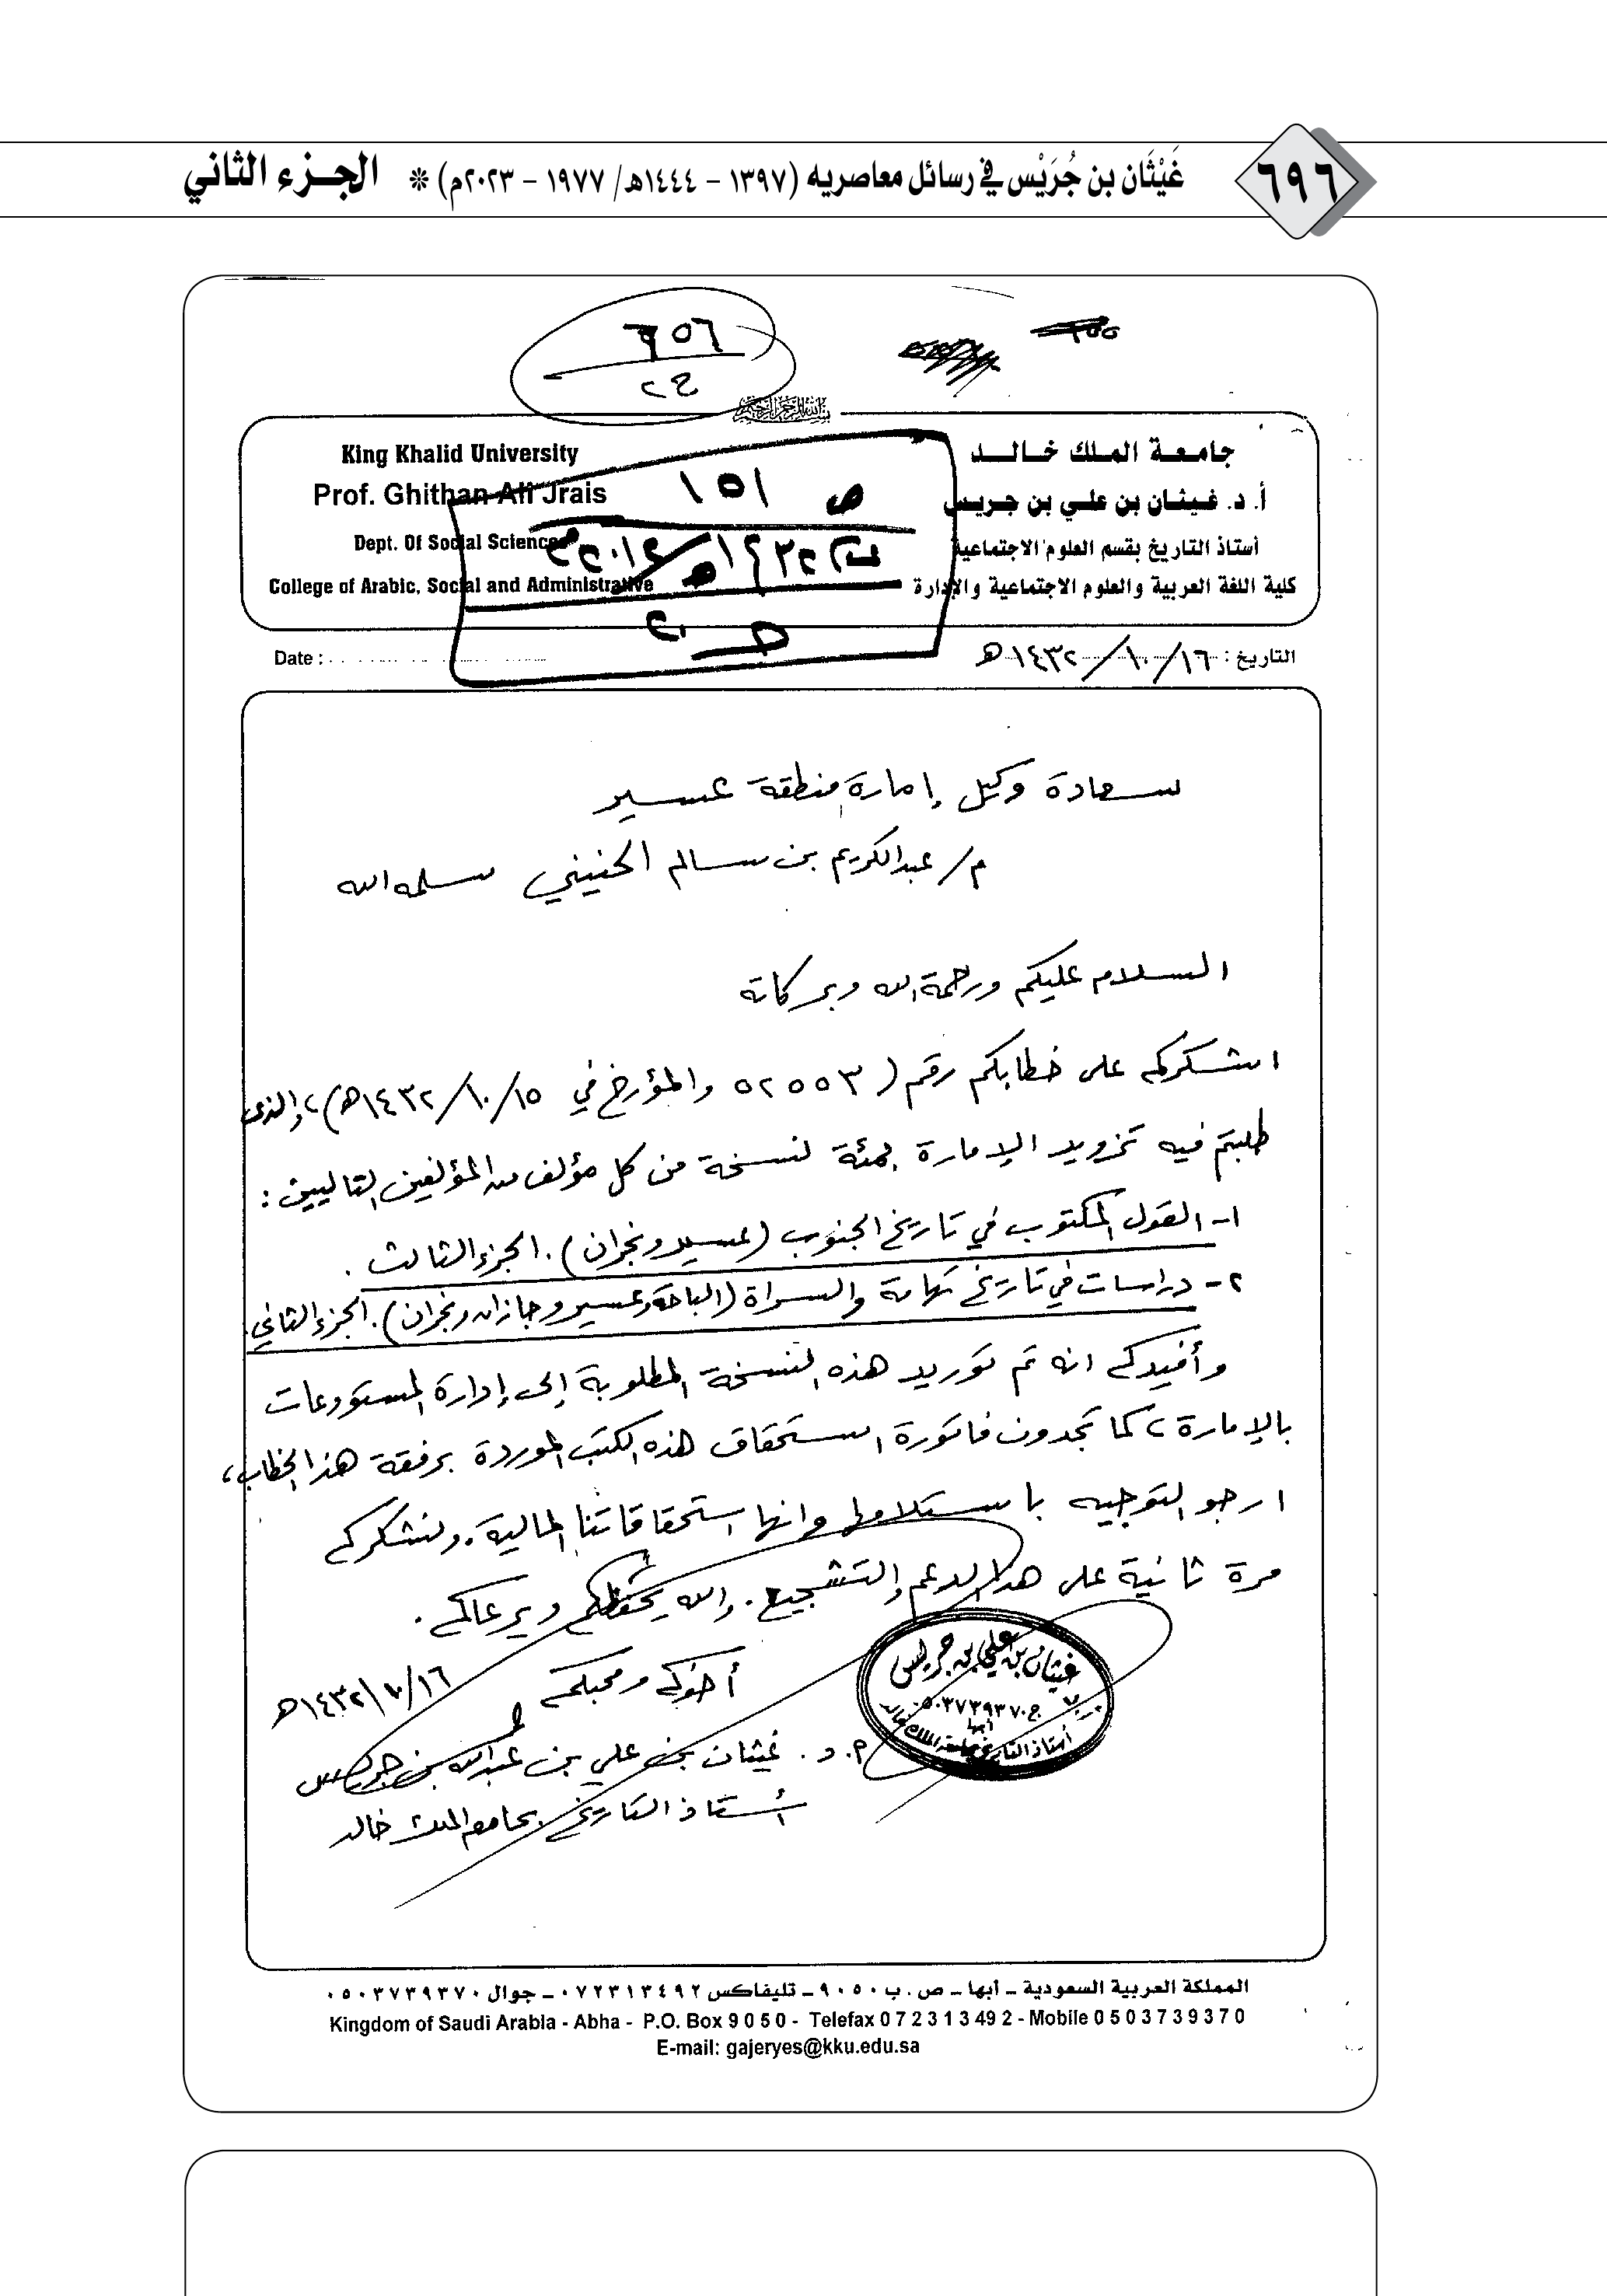 ٦٩٦
غَيْثَان بن جُرَيْس في رسائل معاصريه (١٣٩٧ – ١٤٤٤هـ/ ١٩٧٧ – ٢٠٢٣م) * الجزء الثاني
٦٥٦
بسم الله الرحمن الرحيم
جامعة الملك خالد
أ. د. غيثان بن علي بن جريس
أستاذ التاريخ بقسم العلوم الاجتماعية
كلية اللغة العربية والعلوم الاجتماعية والإدارة
King Khalid University
Prof. Ghithan Ali Jrais
Dept. Of Social Science
College of Arabic, Social and Administrative
ص ١٥١
التاريخ : ١٦/١٠/١٤٣٢هـ
Date :
سعادة وكيل إمارة منطقة عسير
م/ عبدالكريم بن سالم الحنيني سلمه الله
السلام عليكم ورحمة الله وبركاته
اشكركم على خطابكم رقم (٥٢٥٥٣ والمؤرخ في ١٥/١٠/١٤٣٢هـ)، والذي
طلبتم فيه تزويد الإمارة بمئة نسخة من كل مؤلف من المؤلفين التاليين :
١- القول المكتوب في تاريخ الجنوب (عسير ونجران). الجزء الثالث .
٢- دراسات في تاريخ تهامة والسراة (الباحة وعسير وجازان ونجران). الجزء الثاني.
وأفيدكم انه تم توريد هذه النسخة المطلوبة إلى إدارة المستودعات
بالإمارة، كما تجدون فاتورة استحقاق هذه الكتب الموردة برفقة هذا الخطاب،
ارجو التوجيه باستلامها وانها استحقاقاتنا المالية. ونشكركم
مرة ثانية على هذا الدعم والتشجيع. والله يحفظكم ويرعاكم.
أخوكم ومحبكم
١٦/١٠/١٤٣٢هـ
أ. د. غيثان بن علي بن عبدالله بن جريس
أستاذ التاريخ بجامعة الملك خالد
غيثان بن علي بن جريس
ج ٠٥٠٣٧٣٩٣٧٠
أبها
أستاذ التاريخ بجامعة الملك خالد
المملكة العربية السعودية ــ أبها ــ ص . ب ٩٠٥٠ ــ تليفاكس ٠٧٢٣١٣٤٩٢ ــ جوال ٠٥٠٣٧٣٩٣٧٠
Kingdom of Saudi Arabia - Abha - P.O. Box 9050 - Telefax 072313492 - Mobile 0503739370
E-mail: gajeryes@kku.edu.sa